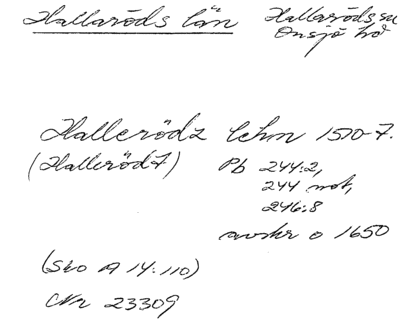 Hallaröds län
Hallaröds sn
Onsjö hd
Hallerödz lehn 1570-7.
(Halleröd 7)
Pb 244:2,
244 not,
246:8
avskr o 1650
(Sko A 14:110)
CNr 23309